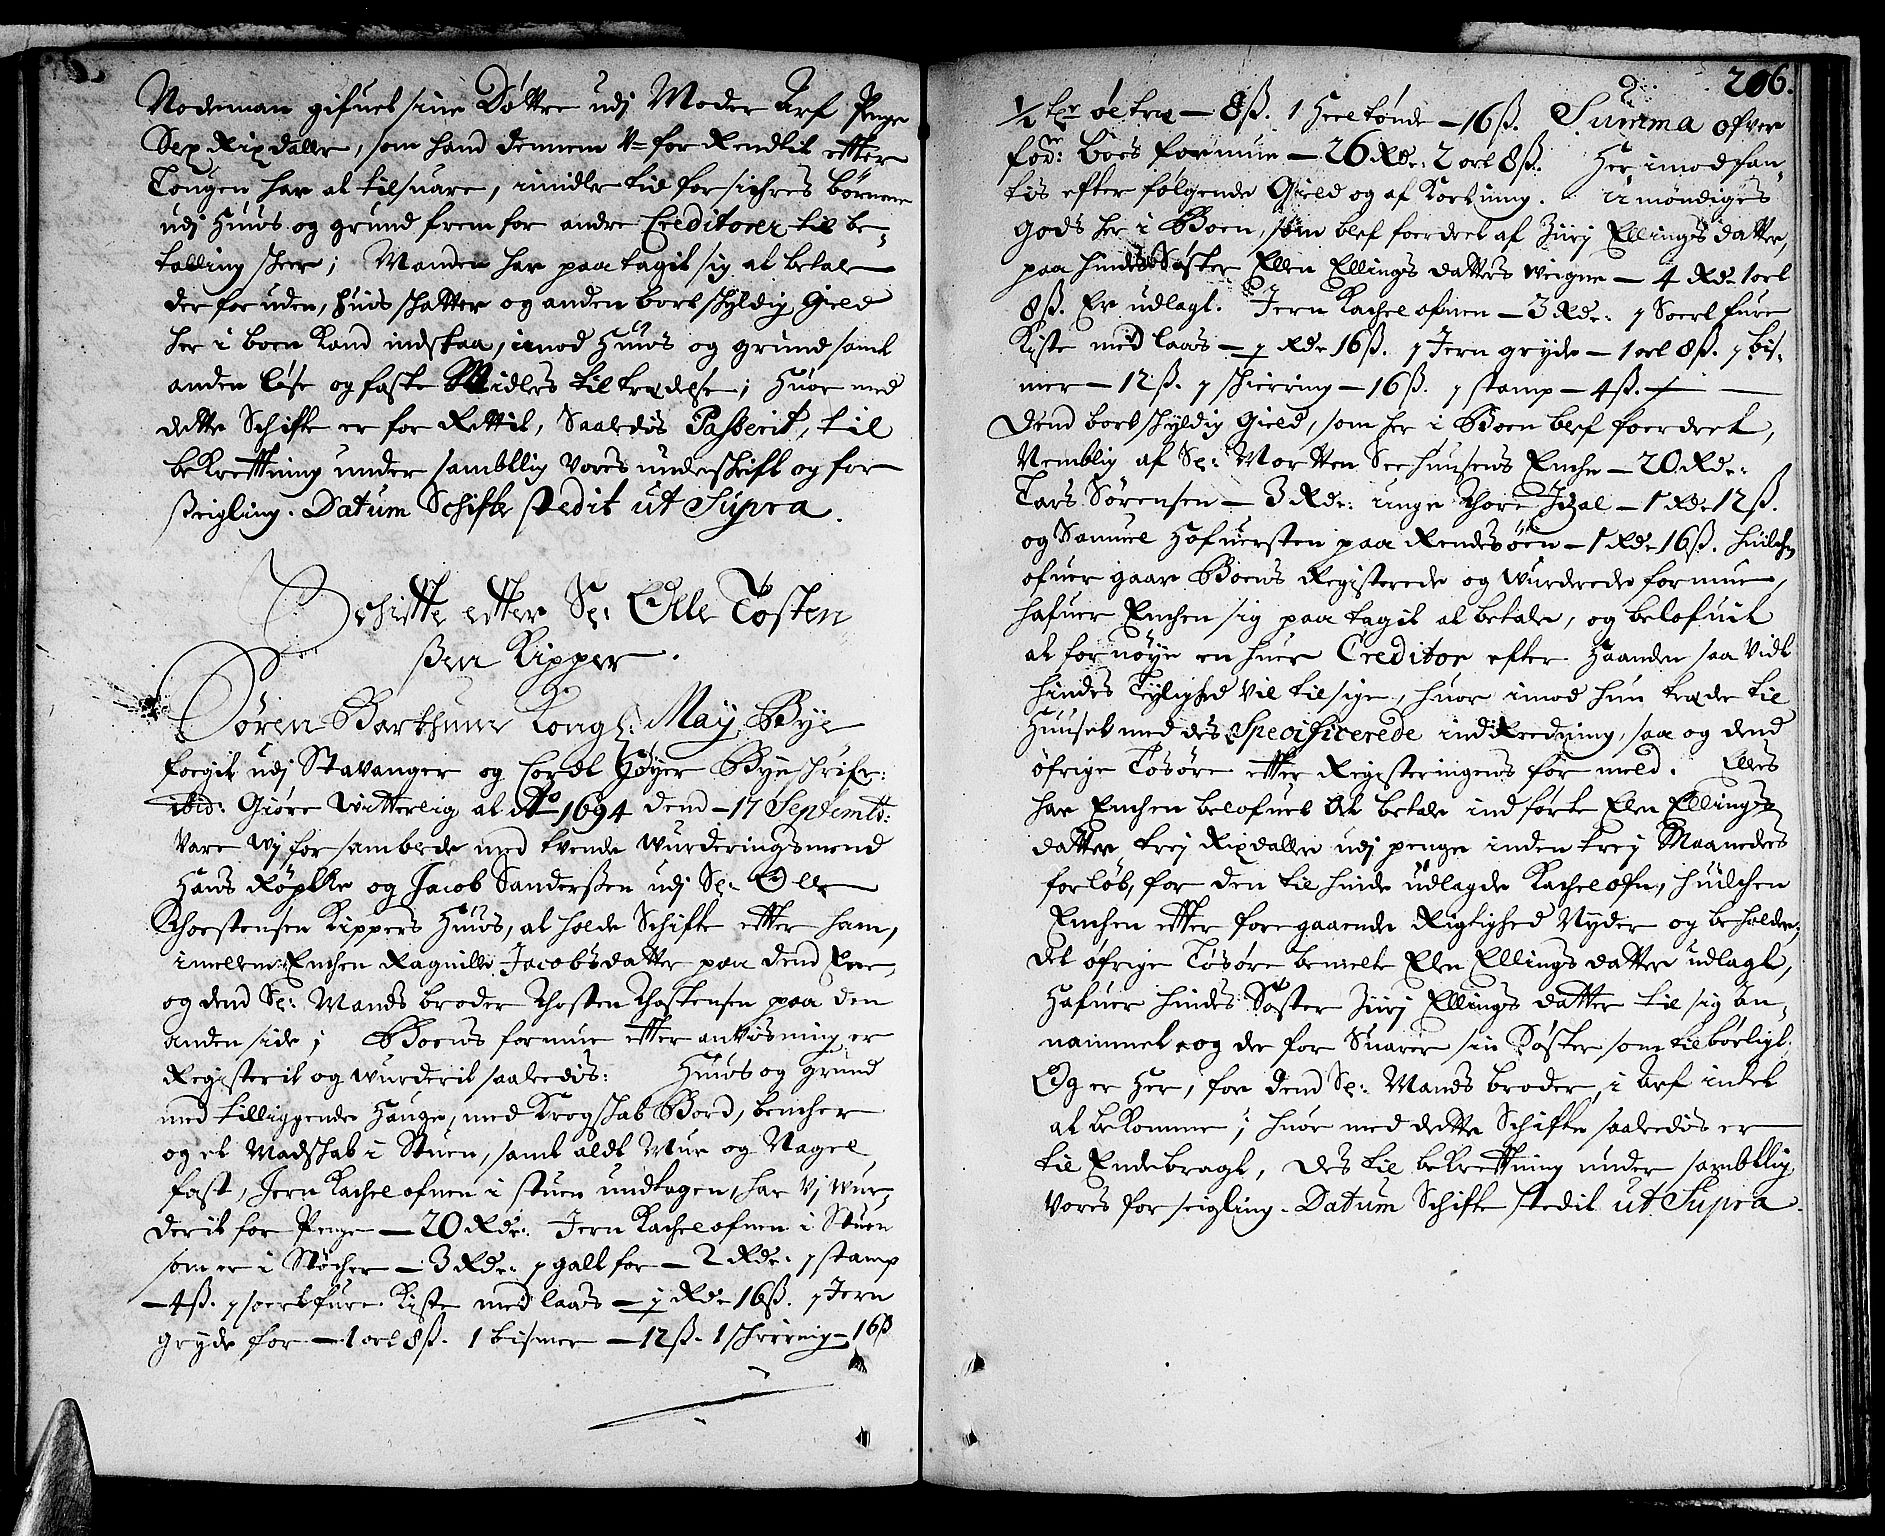 Nodeman gifuet sine Døttre udj Moder Arf Penge
Sex Rixdaller, som hand dennem u-for Rendtit etter
Tougen har at tilsuare, imidler tid forsichres børnene
udj Huus og grund frem for andre Creditorer til be-
talling scheer; Manden har paa tagit sig at betale
der foruden, huis schatter og anden bortschyldig Gield
her i boen Kand indstaa, imod Huus og grund samt
anden løse og faste Midlers tiltredelse; Huor med
dette Schifte er for Rettit, Saaledis Passerit, til
bekrefftning under sambtlig Vores underschrift og for
seigling. Datum Schifte stedit ut Supra.
Schiffte etter Sl: Olle Tosten
ßen Kipper.
Søren Barthum Kongl: May: Bye
foegit udj Stavanger og Cordt Høyer Byeschrifr:
ibid: Giøre Witterlig at Ao 1694 dend - 17 Septembr:
Vare wj forsamblede med tvende Wurderingsmend
Hans Røpkke og Jacob Sanderßen udj Sl: Olle
Thorstensen Kippers Huus, at holde Schifte etter ham,
imellem Enchen Ragnille Jacobsdatter paa dend Ene,
og dend Sl: Mands broder Thosten Thostensen paa den
anden side; Boens formue etter anviisning er
Registerit og wurderit saaledis: Huus og Grund
med tilliggende Hauge, med Krogschab Bord, bencher
og et Madschab i Stuen, samt aldt Mur og Nagel
fast, Jern Kachelofnen i stuen undtagen, har Vj wur-
derit for Penge - 20 Rdr: Jern Kachelofnen i Stuen
som er i Støcher - 3 Rdr: 1 galt for - 2 Rdr: 1 stamp
- 4ß. 1 soert fure Kiste med laas - 1 Rdr 16ß. 1 Jern
gryde for - 1 ort 8ß. 1 bismer - 12ß. 1 schiering - 16ß
206.
1/2 tr øltræ - 8ß. 1 Heel tønde - 16ß. Summa ofver
før: boes formue - 26 Rdr: 2 ort 8ß. Her imod fan-
tis efter følgende Gield og afKortning. u møndiges
gods her i Boen, som blef foerdret af Jurj Ellings datter,
paa hindes Søster Ellen Ellings datters weigne - 4 Rdr 1 ort
8ß. Er udlagt. Jern Kachelofnen - 3 Rdr: 1 Soert fure
Kiste med laas - 1 Rdr 16ß. 1 Jern gryde - 1 ort 8ß. 1 bis-
mer - 12ß. 1 schierring - 16ß. 1 stamp - 4ß.
Dend bortschyldig gield, som her i Boen blef foerdret,
Nemblig af Sl: Mortten Seehuusens Enche - 20 Rdr:
Lars Sørensen - 3 Rdr: unge Thore Idsal - 1 Rdr 12ß.
og Samuel Hofuersten paa Rendesøen - 1 Rdr 16ß. huilche
ofuer gaar Boens Registerede og wurderede formue,
hafuer Enchen sig paa tagit at betale, og belofuit
at fornøye en huer Creditor efter Haanden saa vidt
hindes Tylighed vil tilsige, huor imod hun træde til
Huuset med des Specificerede indReedning, saa og dend
øfrige Løsøre etter Registeringens formeld. Ellers
har Enchen belofuet at betale indførte Elen Ellings
datter trej Rixdaller udj penge inden trej Maaneders
forløb, for den til hinde udlagde Kachelofn, huilchen
Enchen etter foregaaende Rigtighed Nyder og beholder,
det øfrige Løsøre bemelte Elen Ellings datter udlagt,
Hafuer hindes Søster Jurj Ellings datter til sig an-
nammet og der for Suarer sin Søster som tilbørligt.
Og er Her, for dend Sl: Mands broder, i Arf intet
at bekomme; huor med dette Schifte saaledis er
til Endebragt, des til bekrefftning under sambtlig
Vores forseigling. Datum Schifte stedit ut Supra.